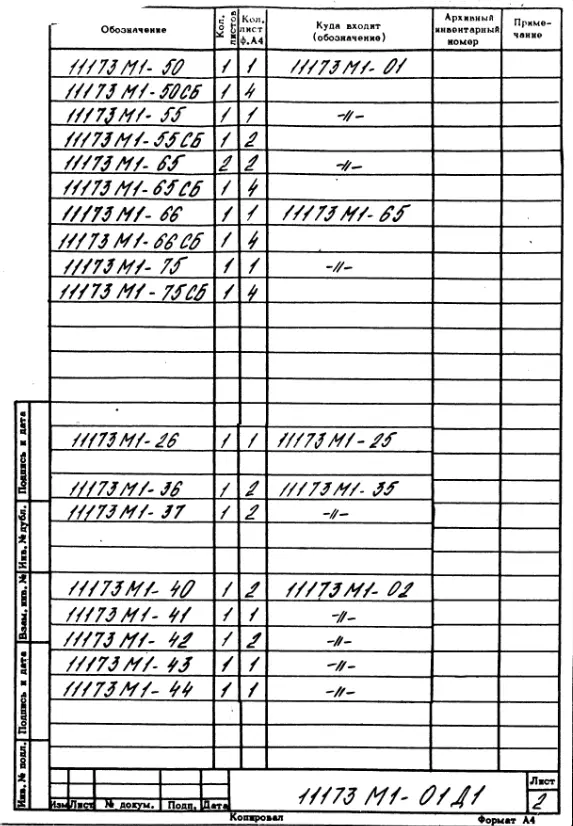 Обозначение Кол. листов Кол. лист ф.А4 Куда входит (обозначение) Архивный инвентарный номер Приме- чание
11173М1-50 1 1 11173М1-01
11173М1-50СБ 1 4
11173М1-55 1 1 -//-
11173М1-55СБ 1 2
11173М1-65 2 2 -//-
11173М1-65СБ 1 4
11173М1-66 1 1 11173М1-65
11173М1-66СБ 1 4
11173М1-75 1 1 -//-
11173М1-75СБ 1 4
11173М1-26 1 1 11173М1-25
11173М1-36 1 2 11173М1-35
11173М1-37 1 2 -//-
11173М1-40 1 2 11173М1-02
11173М1-41 1 1 -//-
11173М1-42 1 2 -//-
11173М1-43 1 1 -//-
11173М1-44 1 1 -//-
Подпись и дата
Инв. № дубл.
Взам. инв. №
Подпись и дата
Инв. № подл.
Изм Лист № докум. Подп. Дата
11173М1-01Д1
Лист
2
Копировал Формат А4